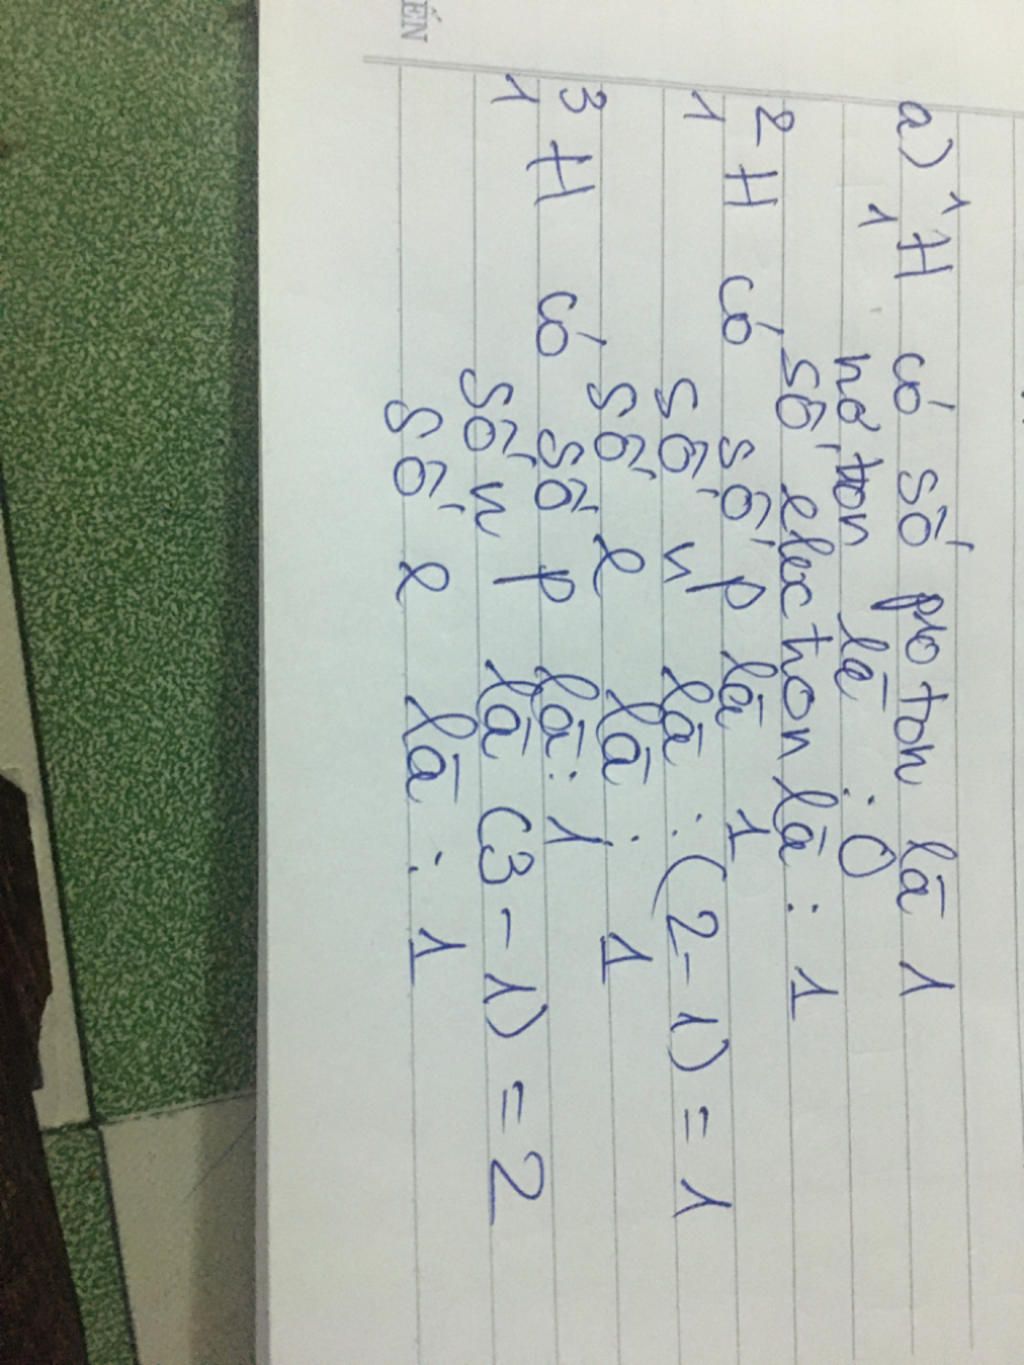 ẾN
a) ¹₁H có số proton là 1
nơtron là : 0
số electron là : 1
²₁H có số p là 1
số n là : (2-1) = 1
số e là : 1
³₁H có số p là : 1
số n là (3-1) = 2
số e là : 1